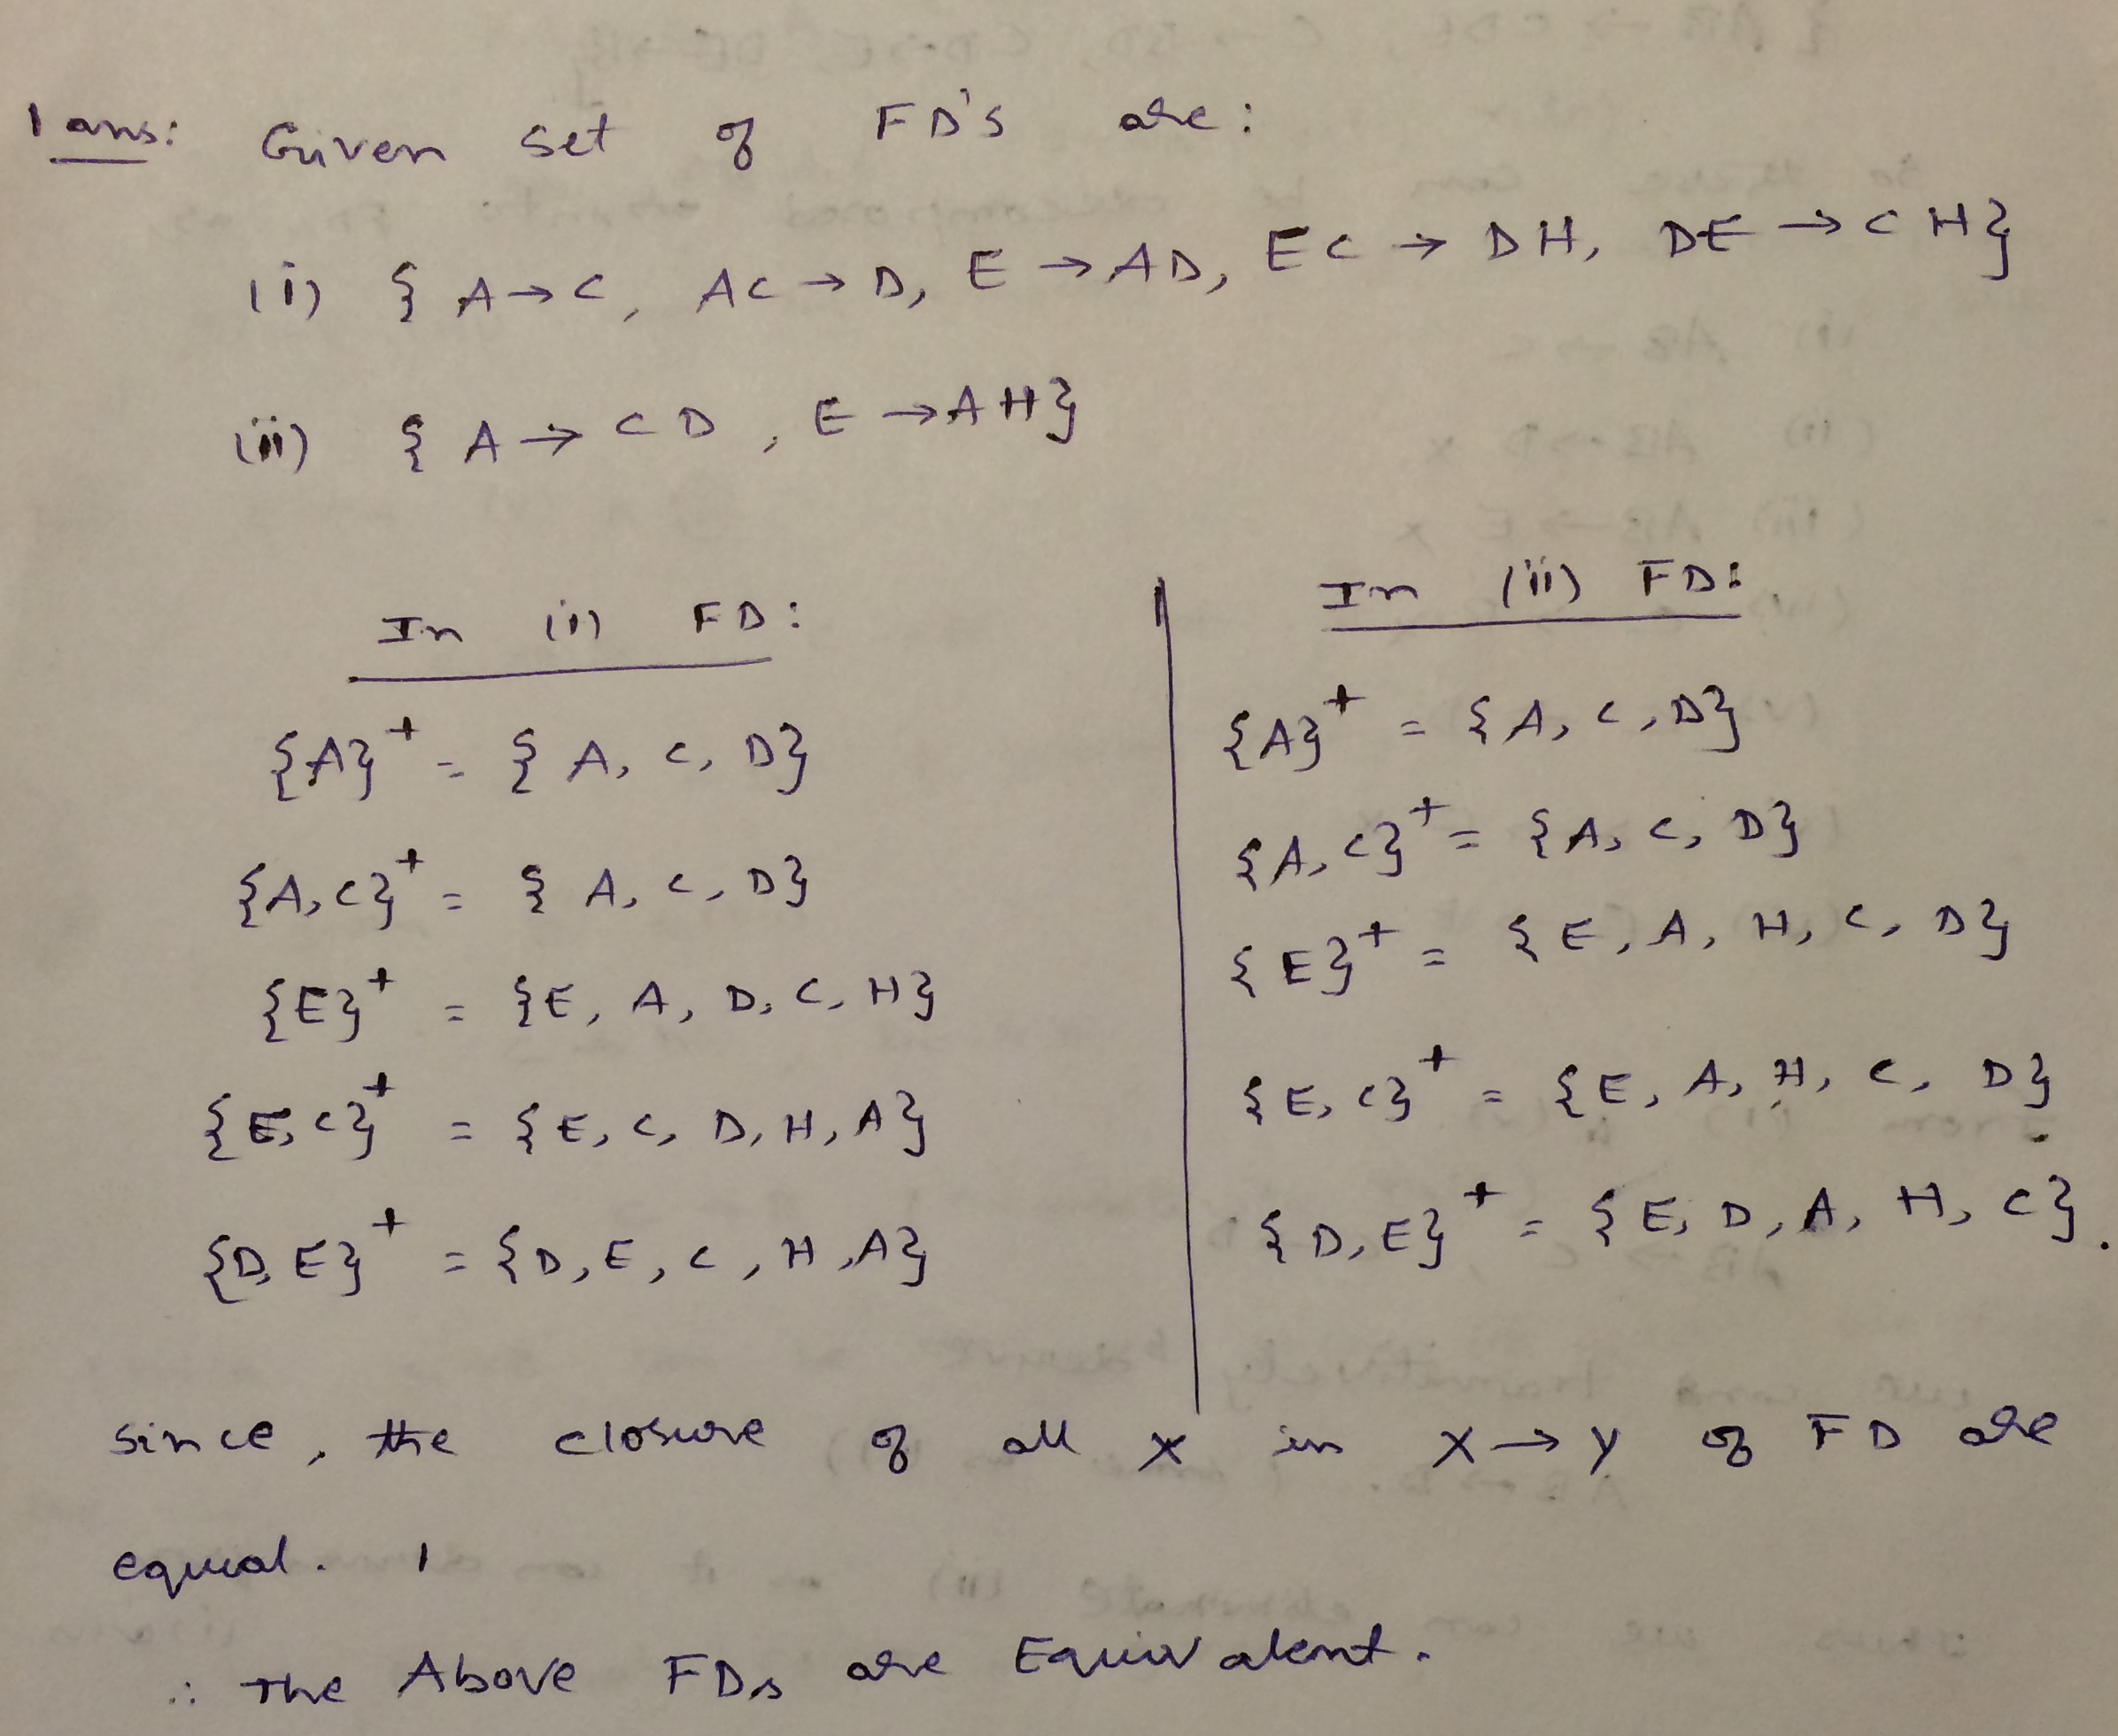 1 ans: Given set of FD's are:
(i) { A→C, AC→D, E→AD, EC→DH, DE→CH}
(ii) { A→CD, E→AH}
In (i) FD:
{A}⁺ = { A, C, D}
{A,C}⁺ = { A, C, D}
{E}⁺ = {E, A, D, C, H}
{E,C}⁺ = {E, C, D, H, A}
{D,E}⁺ = {D, E, C, H, A}
In (ii) FD:
{A}⁺ = {A, C, D}
{A,C}⁺ = {A, C, D}
{E}⁺ = {E, A, H, C, D}
{E,C}⁺ = {E, A, H, C, D}
{D,E}⁺ = {E, D, A, H, C}.
since, the closure of all X in X→Y of FD are
equal.
∴ The Above FDs are Equivalent.